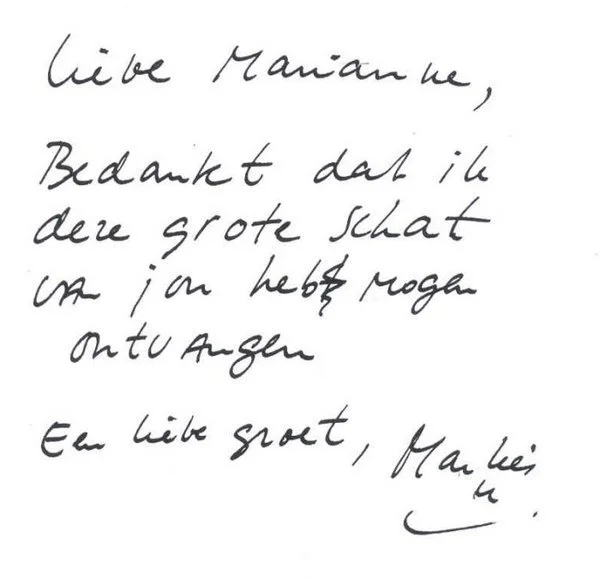 liebe Marianne,
Bedankt dat ik
deze grote schat
van jou heb mogen
ontvangen
Een liebe groet,